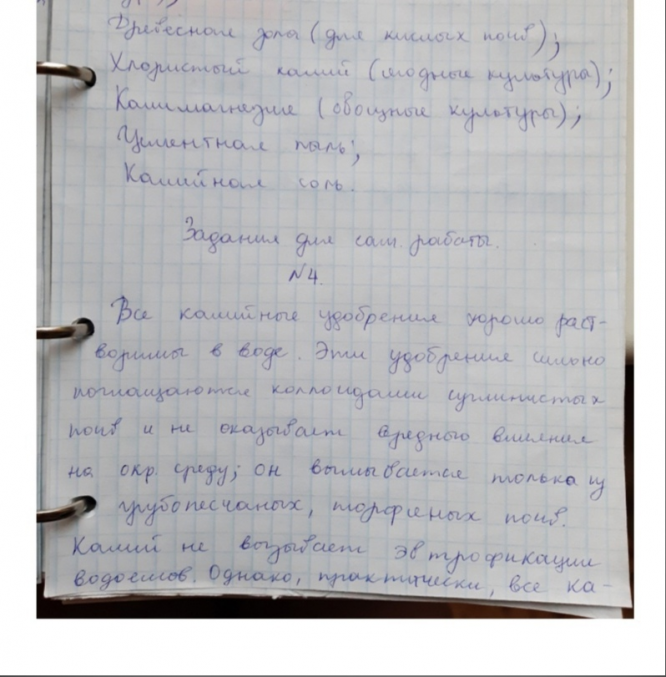 Древесная зола (для кислых почв);
Хлористый калий (ягодные культура);
Калимагнезия (овощные культуры);
Цементная пыль;
Калийная соль.
Задания для сам. работы.
№4.
Все калийные удобрения хорошо раст-
воримы в воде. Эти удобрения сильно
поглощаются коллоидами суглинистых
почв и не оказывает вредного влияния
на окр. среду; он вымывается только из
грубопесчаных, торфяных почв.
Калий не вызывает эвтрофикации
водоемов. Однако, практически, все ка-